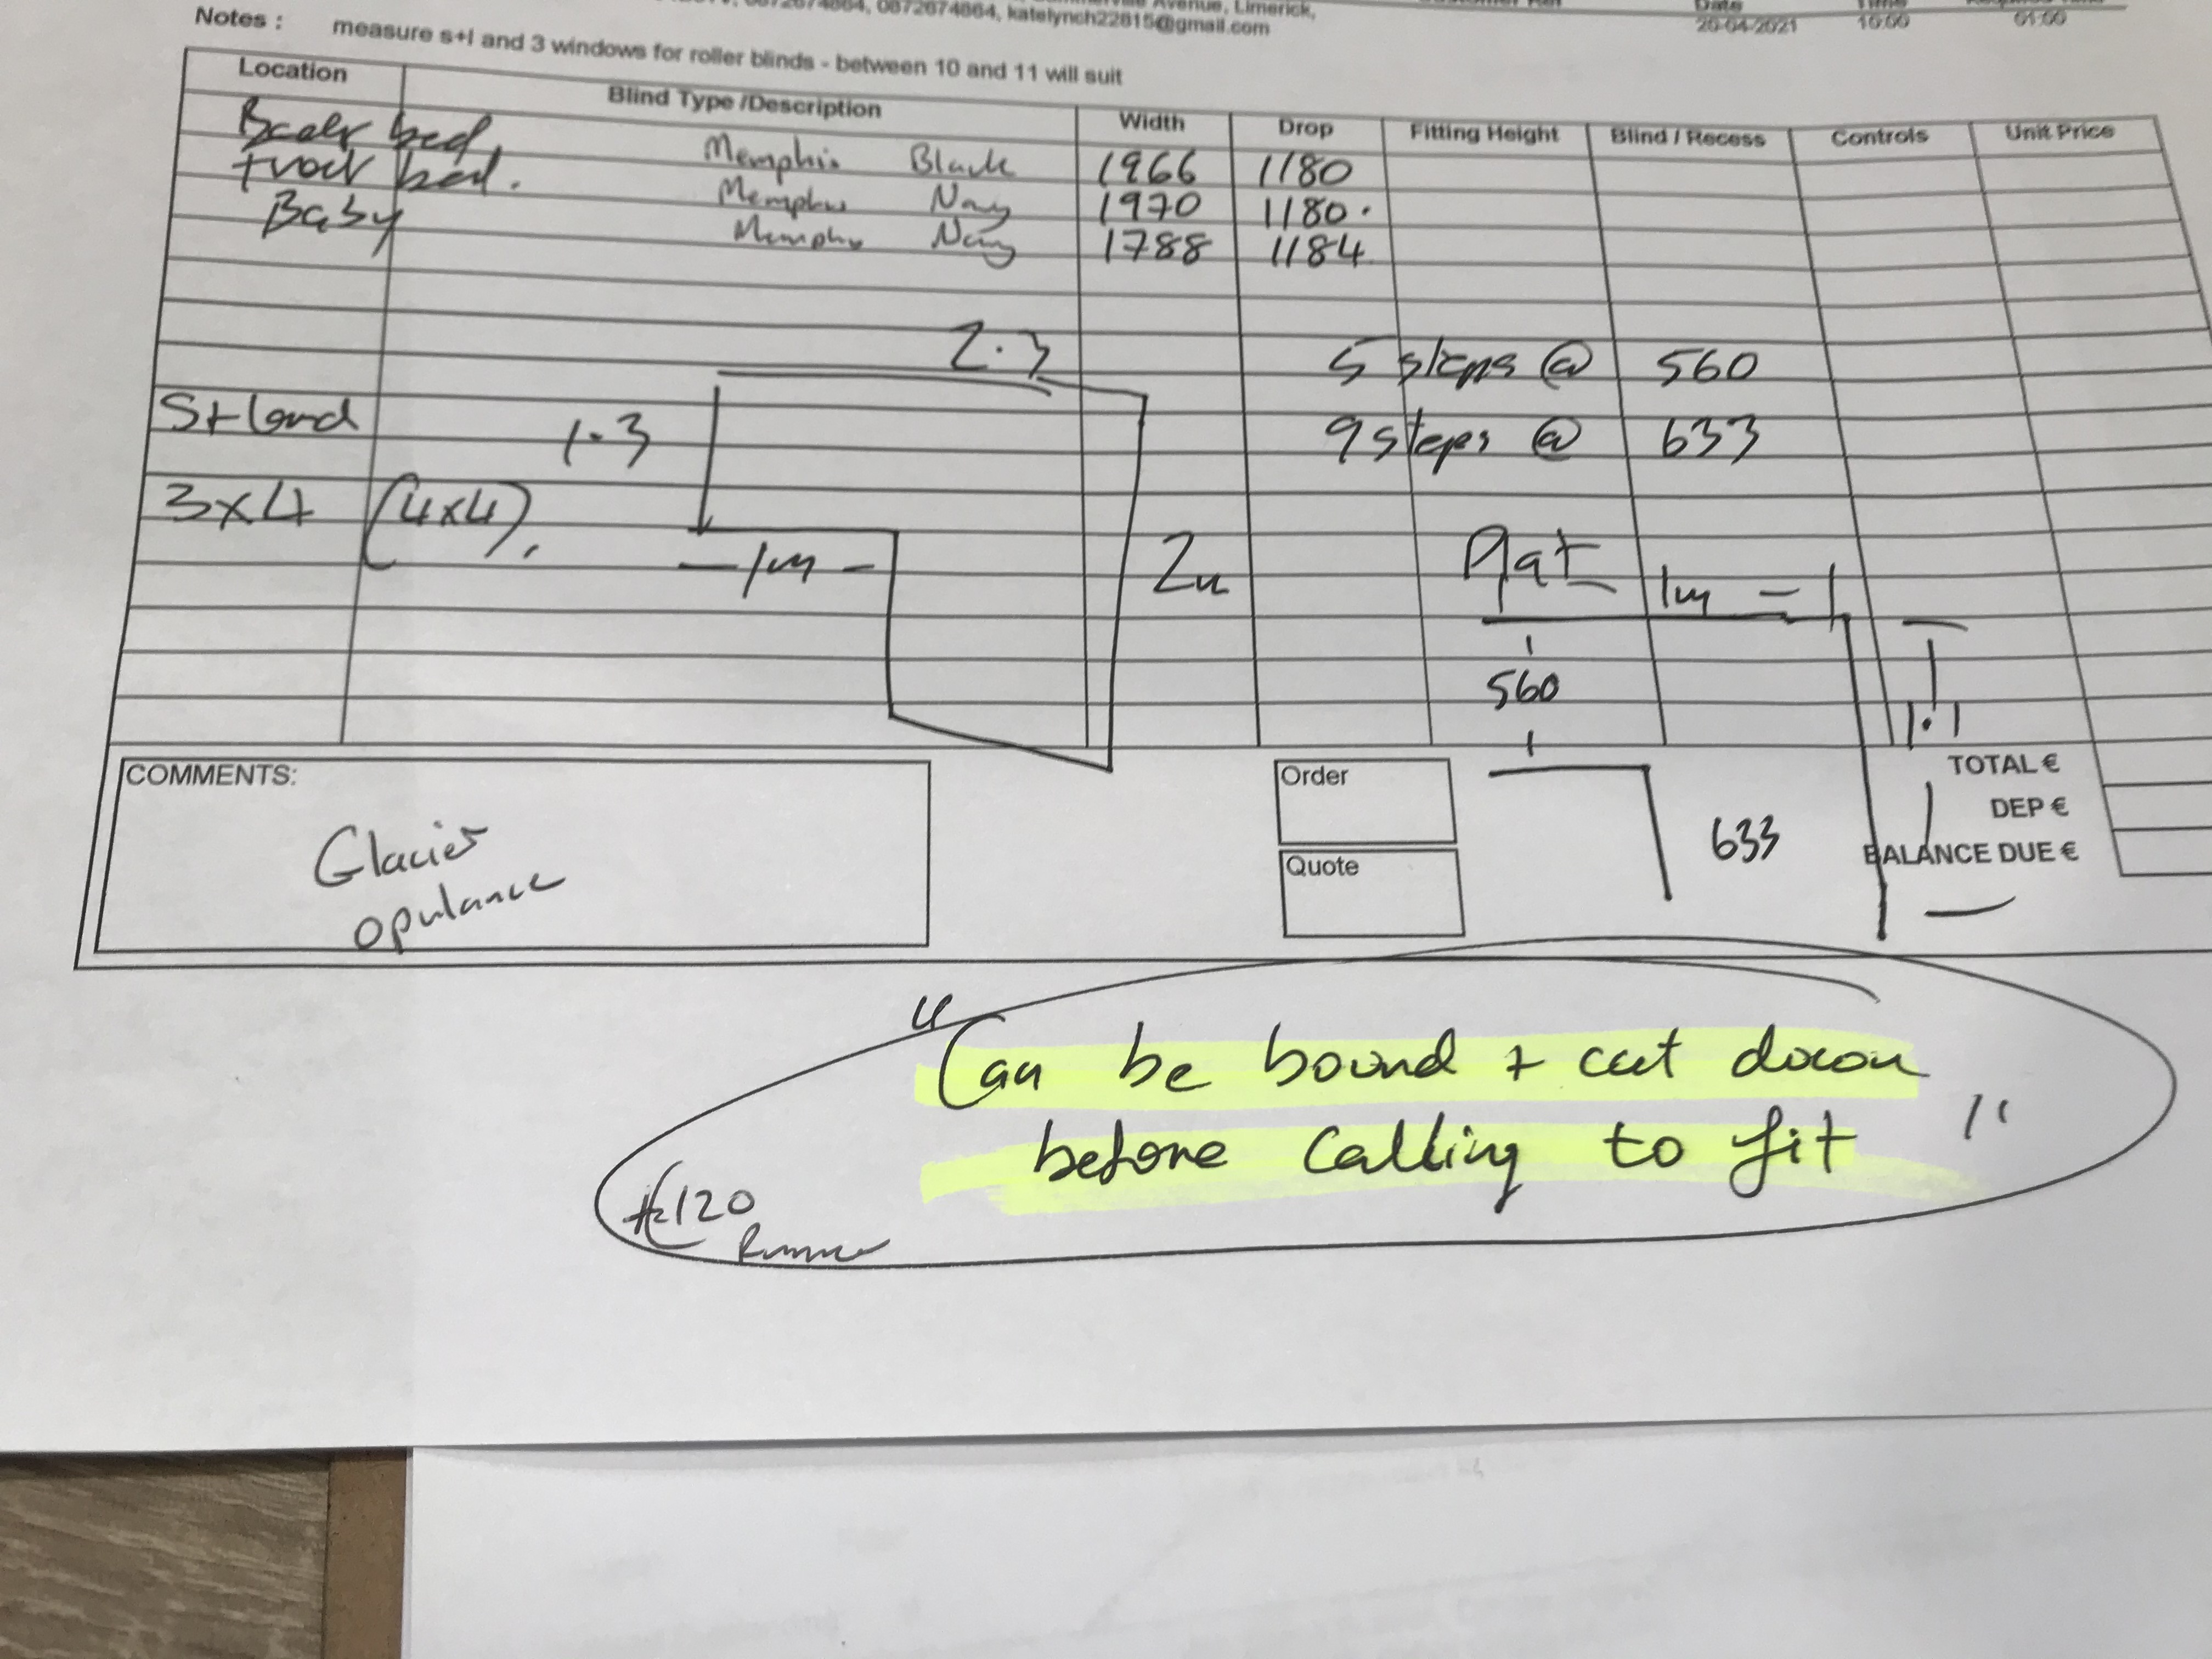 Avenue, Limerick,
0872674864, katelynch22815@gmail.com
Date
20-04-2021 10:00 01:00
Notes : measure s+l and 3 windows for roller blinds - between 10 and 11 will suit
Location Blind Type /Description Width Drop Fitting Height Blind / Recess Controls Unit Price
bed Memphis Black 1966 1180
front bed. Memphis Navy 1970 1180.
Baby Memphis Navy 1788 1184
2.3 5 steps @ 560
S+land 1.3 9 steps @ 633
3x4 (4x4).
-1m- 2m Plat 1m
560
1.1
TOTAL €
DEP €
633
BALANCE DUE €
COMMENTS:
Glacier
opulance
Order
Quote
" Can be bound + cut down
before Calling to fit "
€120
Runner